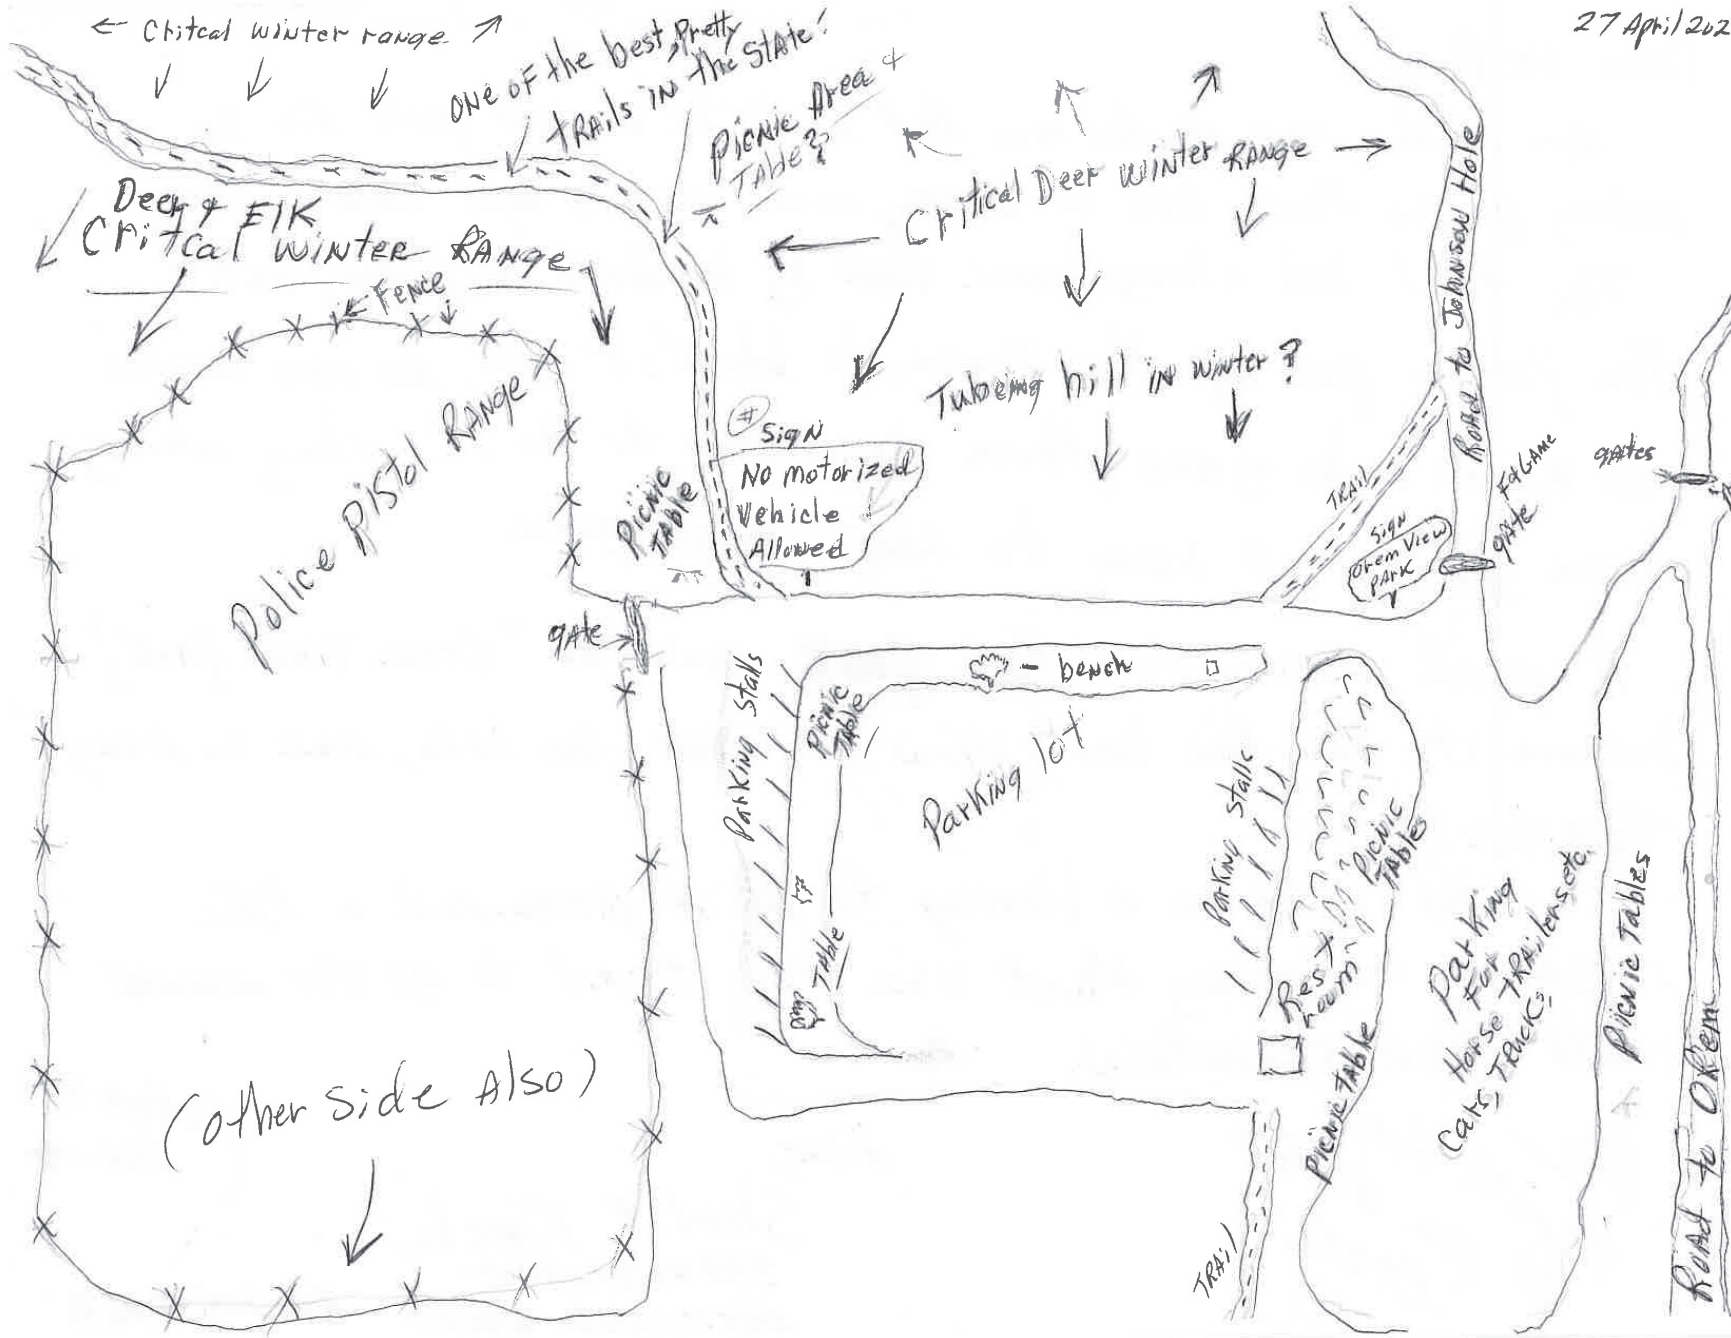 27 April 202
← Chitcal winter range ↗
ONE OF the best, Pretty
tRAils IN the StAte!
Picnic Area +
TABle?
Deer & ElK
Critcal WiNTER RANGE
← FENCE
Critical Deer winter RANGE →
Tubeing hill iN winter?
Road to Johnson Hole
#
SigN
No motorized
Vehicle
Allowed
Picnic
TABle
Police Pistol RANGE
TRAil
SigN
Orem View
PArk
F&GAME
gAte
gAtes
gAte
Parking Stalls
Picnic
TABle
- bench
Parking lot
TABle
Parking Stalls
Picnic
TABles
Rest
room
Picnic TABle
Parking
For
Horse TRAilers etc.
Cars, TRUCKS,
Picnic Tables
Road to ORem
(other side Also)
TRAil